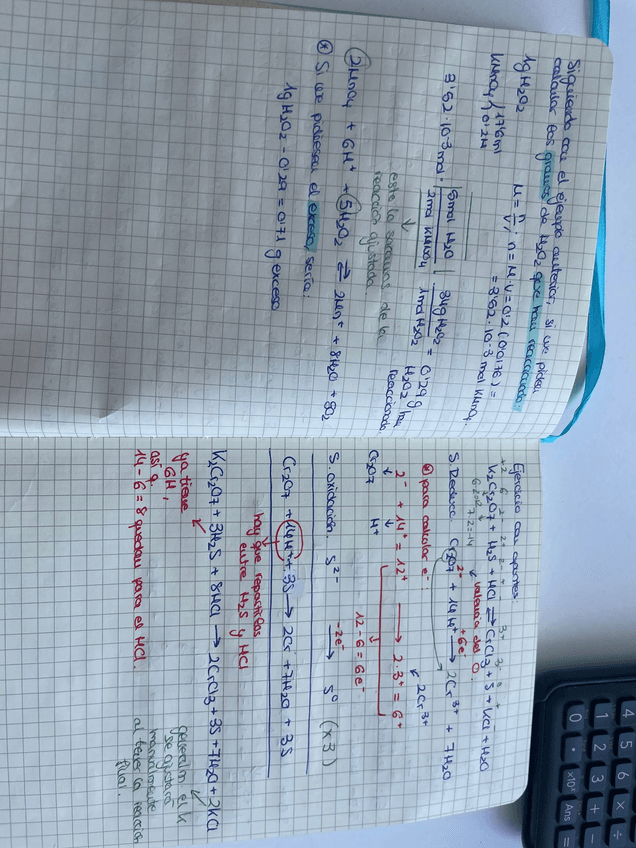 Siguiendo con el ejemplo anterior, si me piden
calcular los gramos de H₂O₂ que han reaccionado:
1g H₂O₂
KMnO₄ { 17'6 ml
0'2M
M = n/V ; n = M·V = 0'2 (0'0176) =
= 3'52·10⁻³ mol KMnO₄
3'52·10⁻³ mol · 5 mol H₂O / 2 mol KMnO₄ | 34g H₂O₂ / 1 mol H₂O₂ = 0'29 g
H₂O₂ han
reaccionado
esto lo sacamos de la
reacción ajustada.
2MnO₄ + 6H⁺ + 5H₂O₂ ⇄ 2Mn⁺ + 8H₂O + 5O₂
* Si me pidiesen el exceso, sería:
1g H₂O₂ - 0'29 = 0'71 g exceso
Ejercicio con apuntes
K₂Cr₂O₇ + H₂S + HCl ⇄ CrCl₃ + S + KCl + H₂O
7·2=14
valencia del O.
S. Reduce Cr₂O₇²⁻ + 14H⁺ +6e⁻ → 2Cr³⁺ + 7H₂O
* para calcular e⁻:
2⁻ + 14⁺ = 12⁺ → 2·3⁺ = 6⁺
Cr₂O₇ H⁺ 2Cr³⁺
12-6 = 6e⁻
S. oxidación. S²⁻ -2e⁻ → S⁰ (x3)
Cr₂O₇ + 14H⁺ + 3S → 2Cr + 7H₂O + 3S
hay que repartirlos
entre H₂S y HCl
K₂Cr₂O₇ + 3H₂S + 8HCl → 2CrCl₃ + 3S + 7H₂O + 2KCl
ya tiene
6H,
así q.
14-6 = 8 quedan para el HCl.
el K
se ajustará
manualmente
al tener la reacción
final.
4 5 6 ×  ÷
1 2 3 + −
0 . ×10ˣ Ans =